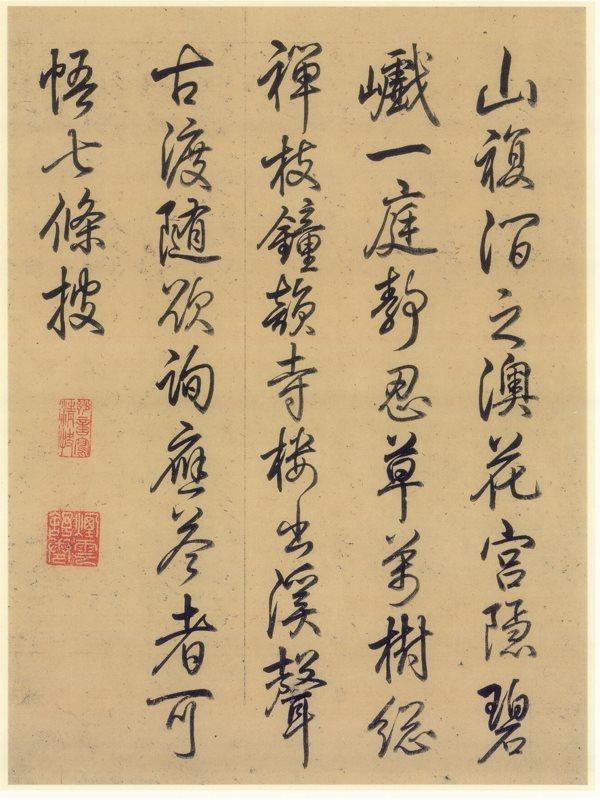 山複澗之澳花宮隱碧
巇一庭靜忍草萬樹總
禪枝鐘韻寺樓出溪聲
古渡随欲詢應答者可
悟七條披